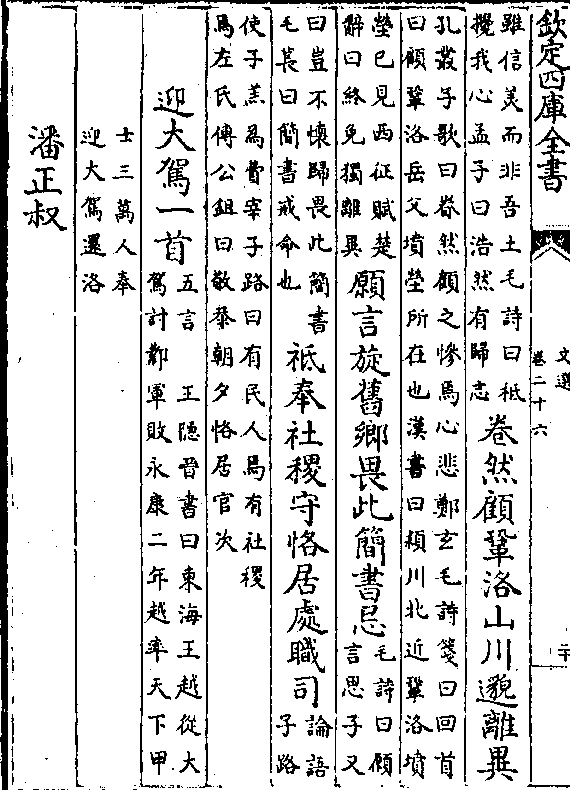 欽定四庫全書
文選
卷二十六
二十
雖信美而非吾土毛詩曰祗
攪我心孟子曰浩然有歸志
眷然顧鞏洛山川邈離異
孔叢子歌曰眷然顧之慘焉心悲鄭玄毛詩箋曰回首
曰顧鞏洛岳父墳塋所在也漢書曰潁川北近鞏洛墳
塋已見西征賦楚
辭曰終免獨離異
願言旋舊鄉畏此簡書忌
毛詩曰願
言思子又
曰豈不懷歸畏此簡書
毛萇曰簡書戒命也
祗奉社稷守恪居處職司
論語
子路
使子羔為費宰子路曰有民人焉有社稷
焉左氏傳公鉏曰敬恭朝夕恪居官次
迎大駕一首
五言 王隱晉書曰東海王越從大
駕討鄴軍敗永康二年越率天下甲
士三萬人奉
迎大駕還洛
潘正叔